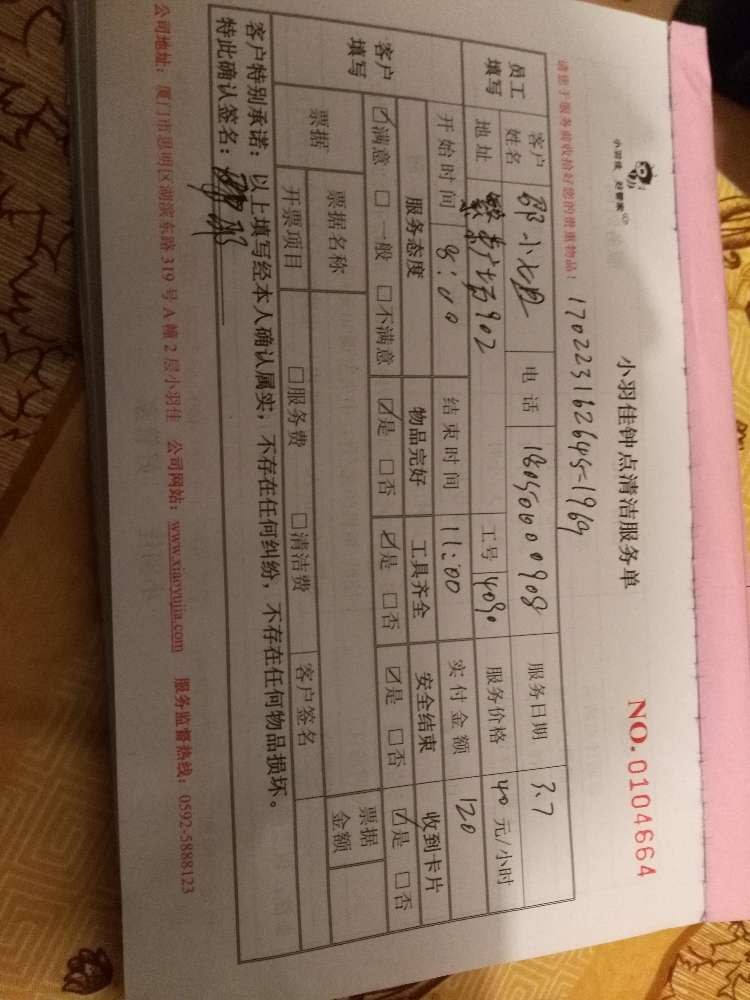 小羽佳 好管家
小羽佳钟点清洁服务单
NO. 0104664
请您于服务前收拾好您的贵重物品！
170223162645-1969
员工填写 客户姓名 邵小姐 电话 18050000908 服务日期 3.7
地址 902 工号 4090 服务价格 40 元/小时
开始时间 8:00 结束时间 11:00 实付金额 120
客户填写 服务态度 物品完好 工具齐全 安全结束 收到卡片
☑满意 □一般 □不满意 ☑是 □否 ☑是 □否 ☑是 □否 ☑是 □否
票据 票据名称 票据金额
开票项目 □服务费 □清洁费 客户签名
客户特别承诺：以上填写经本人确认属实，不存在任何纠纷，不存在任何物品损坏。
特此确认签名：
公司地址：厦门市思明区湖滨东路 319 号 A 幢 2 层小羽佳 公司网站：www.xiaoyujia.com 服务监督热线：0592-5888123